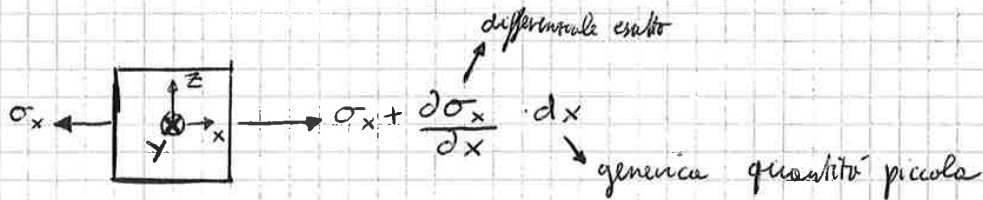 differenziale esatto
σx z x y σx + ∂σx/∂x · dx
generica quantità piccola